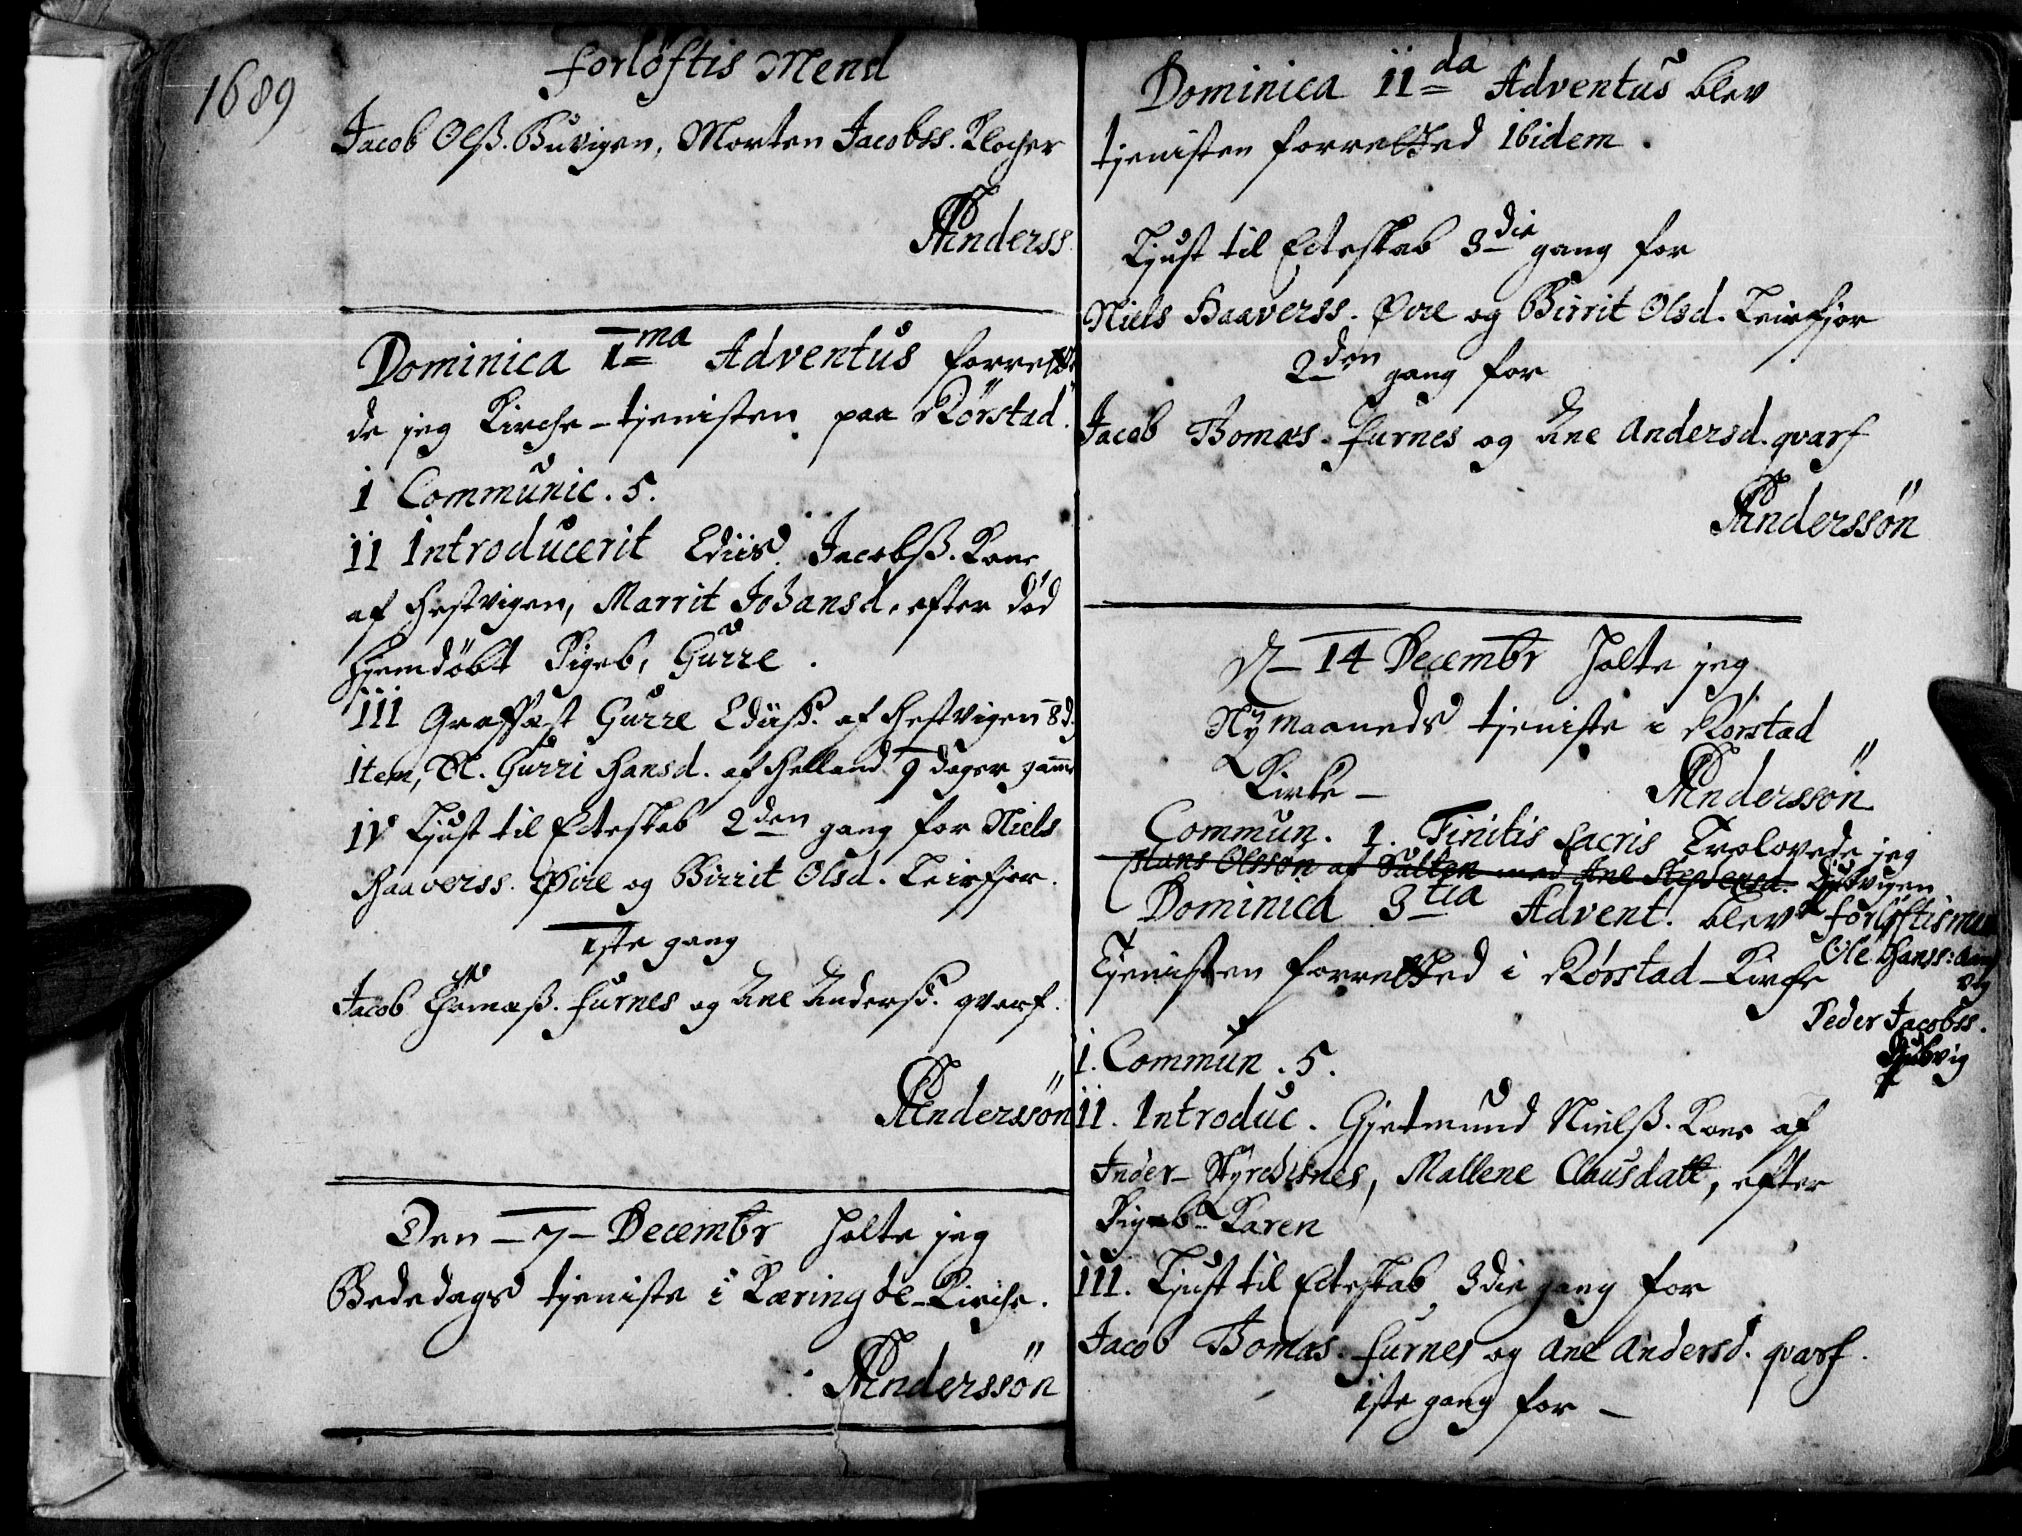 1689
forløftis Mend
Jacob Olss. Buvigen, Morten Jacobss. Klocher
PAnderss.
Dominica I ma Adventus forrett
de jeg Kirche-tjenisten paa Rörstad.
i Communic. 5.
ii Introducerit Ediis Jacobss. Kone
af Hestvigen, Marrit Johansd, efter död
Hjemdöbt Pigeb, Gurre.
iii Graffæst Gurre Ediisd. af Hestvigen 8 d.
Item, Gurri Hansd. af Helland 9 dager gamel
iv Liust til Ecteskab 2den gang for Niels
Haaverss. Øire og Birrit Olsd. Leirfjor.
1ste gang
Jacob Thomæss. furnes og Ane Andersd. qvarf.
PAnderssön
Den - 7 - Decembr holte jeg
Bededags tjeniste i Kæringöe-Kirche.
PAnderssön
Dominica II da Adventus blev
tjenisten forretted Ibidem.
Liust til Ecteskab 3die gang for
Niels Haaverss. Øire og Birrit Olsd. Leirfjor
2den gang for
Jacob Thomæs. furnes og Ane Andersd. qvarf
PAnderssön
D - 14 Decembr holte jeg
Nÿ maaneds tjeniste i Rörstad
Kirke -
PAnderssön
Commun. 1. Finitis sacris Trolovede jeg
Hans Olssön af Salten med Ane Stephensd.
Dominica 3 tia Advent. blev
forløftismen
Tjenisten forretted i Rörstad-Kirche
Ole Hanss:
vig
Peder Jacobss.
i. Commun. 5.
ii. Introduc. Gjetmund Nielss. Kone af
Inder-Styrchisnes, Mallene Clausdatt, efter
Pigeb. Karen
iii. Liust til Ecteskab 3die gang for
Jacob Thomæs. furnes og Ane Andersd. qvarf.
1ste gang for -